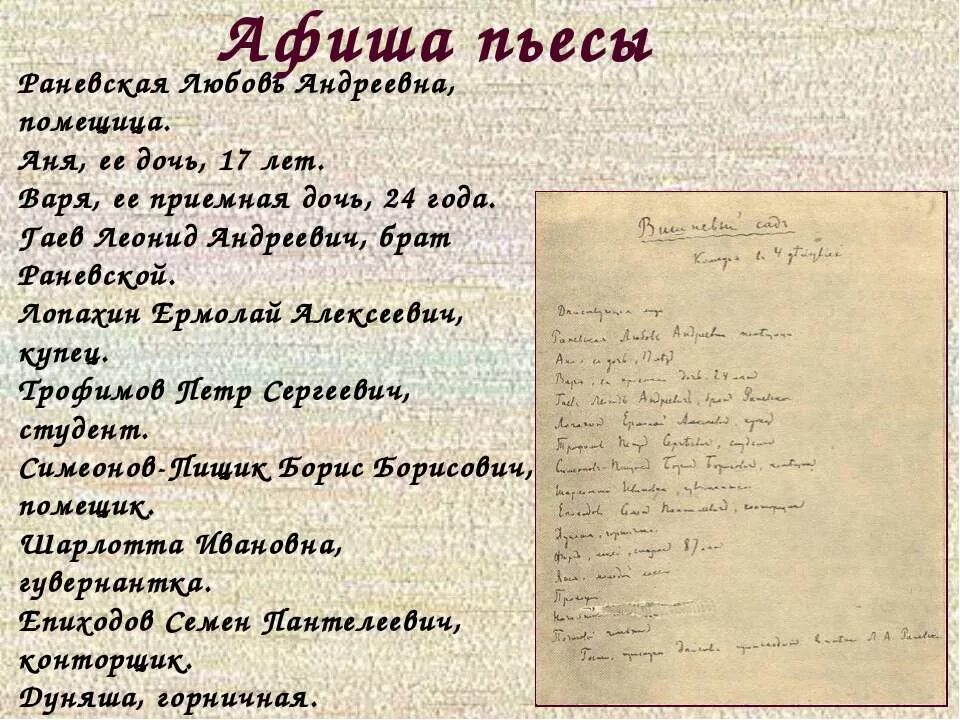 Афиша пьесы
Раневская Любовь Андреевна,
помещица.
Аня, ее дочь, 17 лет.
Варя, ее приемная дочь, 24 года.
Гаев Леонид Андреевич, брат
Раневской.
Лопахин Ермолай Алексеевич,
купец.
Трофимов Петр Сергеевич,
студент.
Симеонов-Пищик Борис Борисович,
помещик.
Шарлотта Ивановна,
гувернантка.
Епиходов Семен Пантелеевич,
конторщик.
Дуняша, горничная.
Вишневый садъ
Комедiя въ 4 дѣйствiяхъ
Дѣйствующiя лица
Раневская Любовь Андреевна помещица
Аня, ея дочь, 17 лѣтъ
Варя, ея дочь, 24 лѣтъ
Гаевъ Леонидъ Андреевичъ, братъ Раневской
Лопахинъ Ермолай Алексеевичъ, купецъ
Трофимовъ Петръ Сергѣевичъ, студентъ
Симеоновъ-Пищикъ Борисъ Борисовичъ,
Шарлотта Ивановна, гувернантка
Епиходовъ Семенъ Пантелеевичъ, конторщикъ
Дуняша, горничная
Фирсъ, лакей, 87 лѣтъ
Яша, молодой лакей